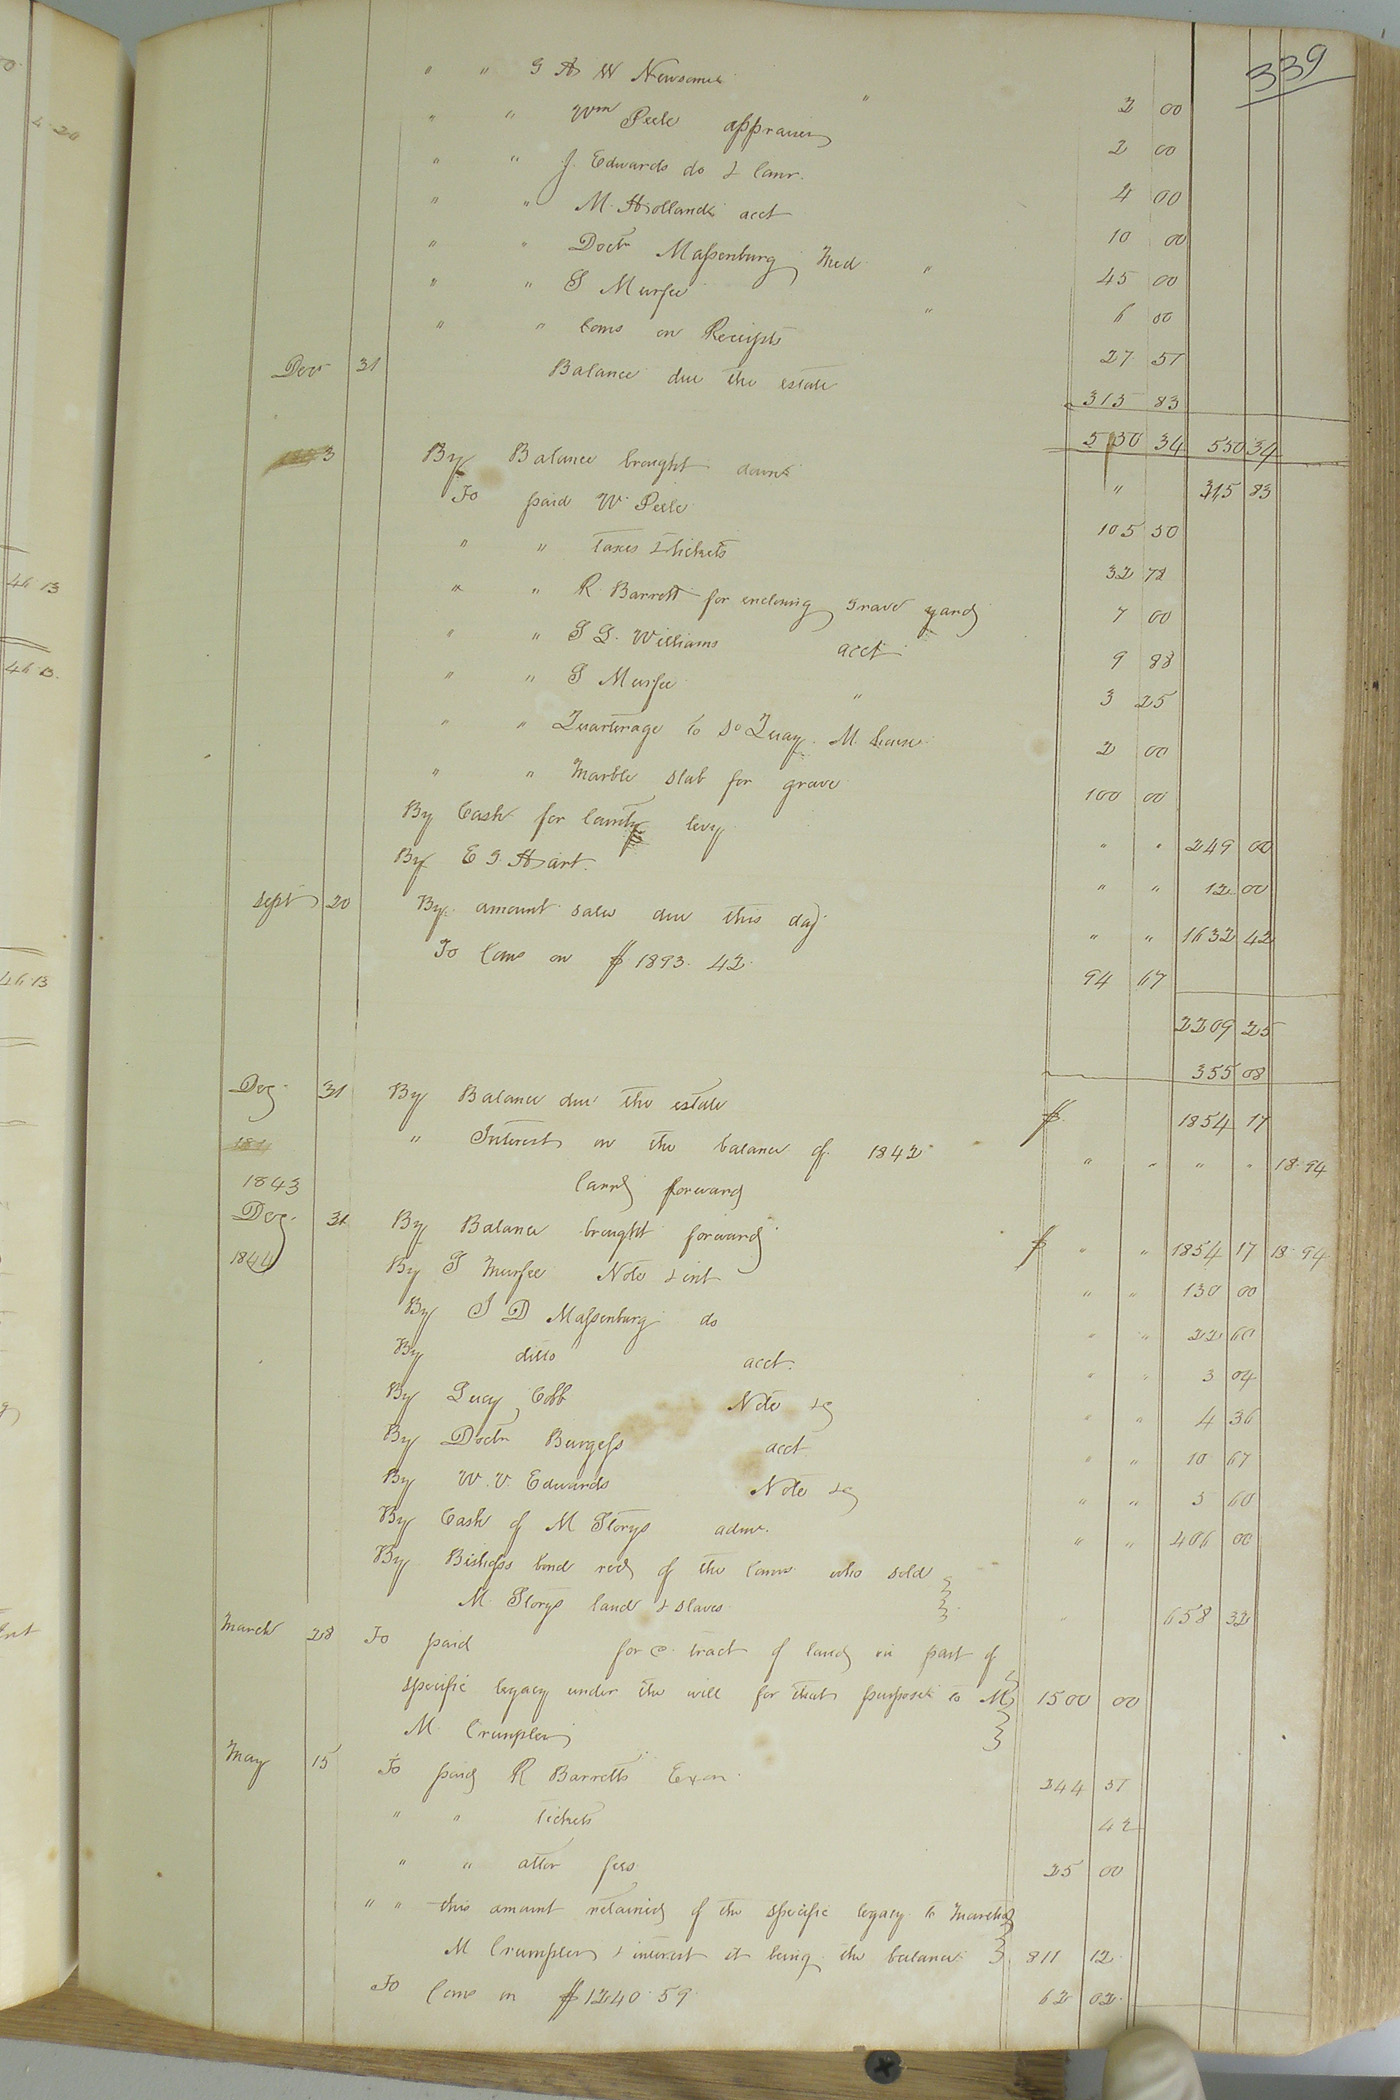 339
" " G A W Newsome " 2 00
" " Wm Peele appraiser 2 00
" " J. Edwards do & Comr. 4 00
" " M. Hollands acct 10 00
" " Doctr Massenburg Med " 45 00
" " S Murfee " 6 00
" " Coms on Receipts 27 51
Decr 31 Balance due the estate 315 83
530 34 530 34
3 By Balance brought down " 315 83
To paid W. Peele 105 50
" " Taxes & tickets 32 78
" " R Barrett for enclosing Grave yard 7 00
" " S G. Williams acct 9 88
" " S Murfee " 3 25
" " Quarterage to So Quay M. house 2 00
" " Marble slab for grave 100 00
By Cash for County levy " " 249 00
By E G Hart. " " 12 00
Sept 20 By amount sales due this day " " 1632 42
To Coms on $1893.42 94 67
2209 25
355 08
Dec 31 By Balance due the estate $ 1854 17
" Interest on the balance of 1842 " " " " 18.94
1843 Carrd forward
Dec. 31 By Balance brought forward $ " " 1854 17 18.94
1844 By S Murfee Note & int " " 130 00
By S D Massenburg do " " 22 60
By ditto acct. " " 3 04
By Lucy Cobb Note &c " " 4 36
By Doctr Burgess acct " " 10 67
By W. V. Edwards Note &c " " 5 60
By Cash of M Storys admr. " " 406 00
By Bishops bond recd of the Comr who sold
M. Storys land & slaves " 658 32
March 28 To paid for a tract of land in part of
specific legacy under the will for that purpose to M 1500 00
M. Crumpler
May 15 To paid R Barretts Exor. 244 51
" " tickets 42
" " attor fees 25 00
" " this amount retained of the specific legacy to Martha
M Crumpler & interest it being the balance 811 12
To Coms on $1240.59 62 02